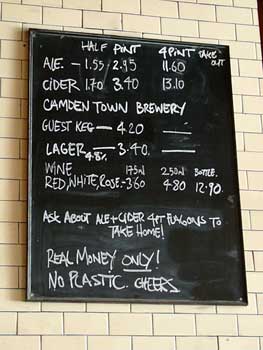 HALF PINT 4 PINT TAKE OUT
ALE. — 1.55 — 2.95 11.60
CIDER 1.70 3.40 13.10
CAMDEN TOWN BREWERY
GUEST KEG — 4.20 —
LAGER — 3.40. —
4.8%
WINE 175ml 250ml BOTTLE.
RED, WHITE, ROSE. — 3.60 4.80 12.90
ASK ABOUT ALE + CIDER 4PT FLAGONS TO
TAKE HOME!
REAL MONEY ONLY!
NO PLASTIC. CHEERS